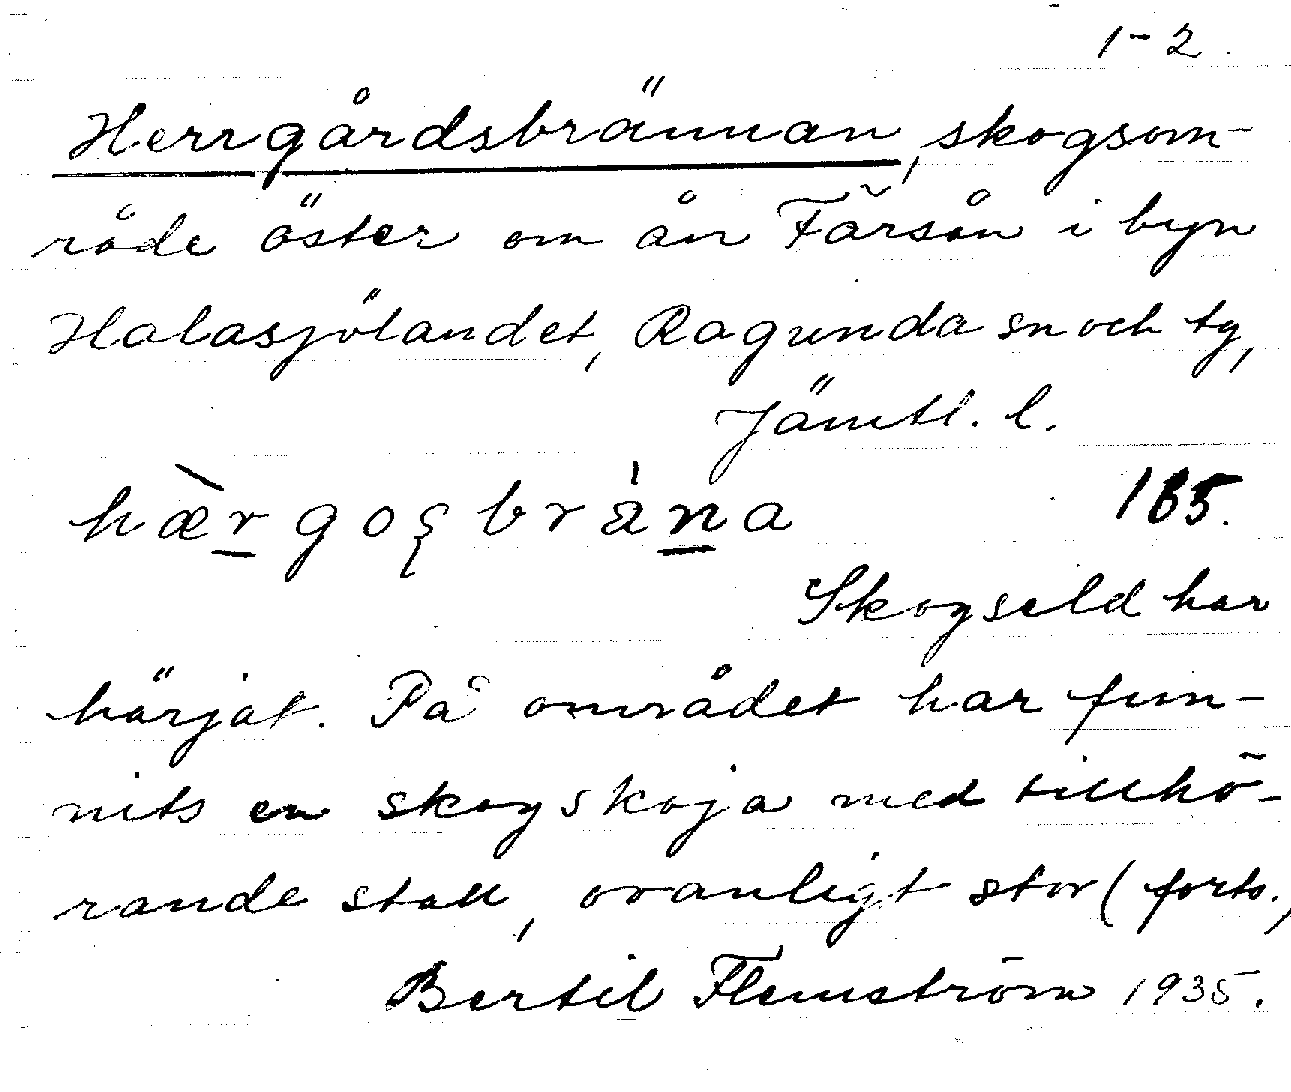 1-2.
Herrgårdsbrännan, skogsom-
råde öster om ån Färsån i byn
Halasjölandet, Ragunda sn och tg,
Jämtl. l.
hæ̀r̲goʂbrȧn̲a 165.
Skogseld har
härjat. På området har fun-
nits en skogskoja med tillhö-
rande stall, ovanligt stor (forts.,
Bertil Flemström 1935.